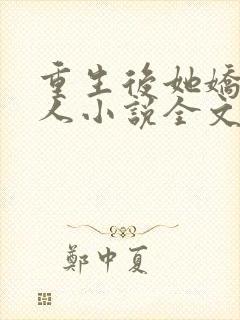 重生後她嬌
人小說全文
鄭中夏